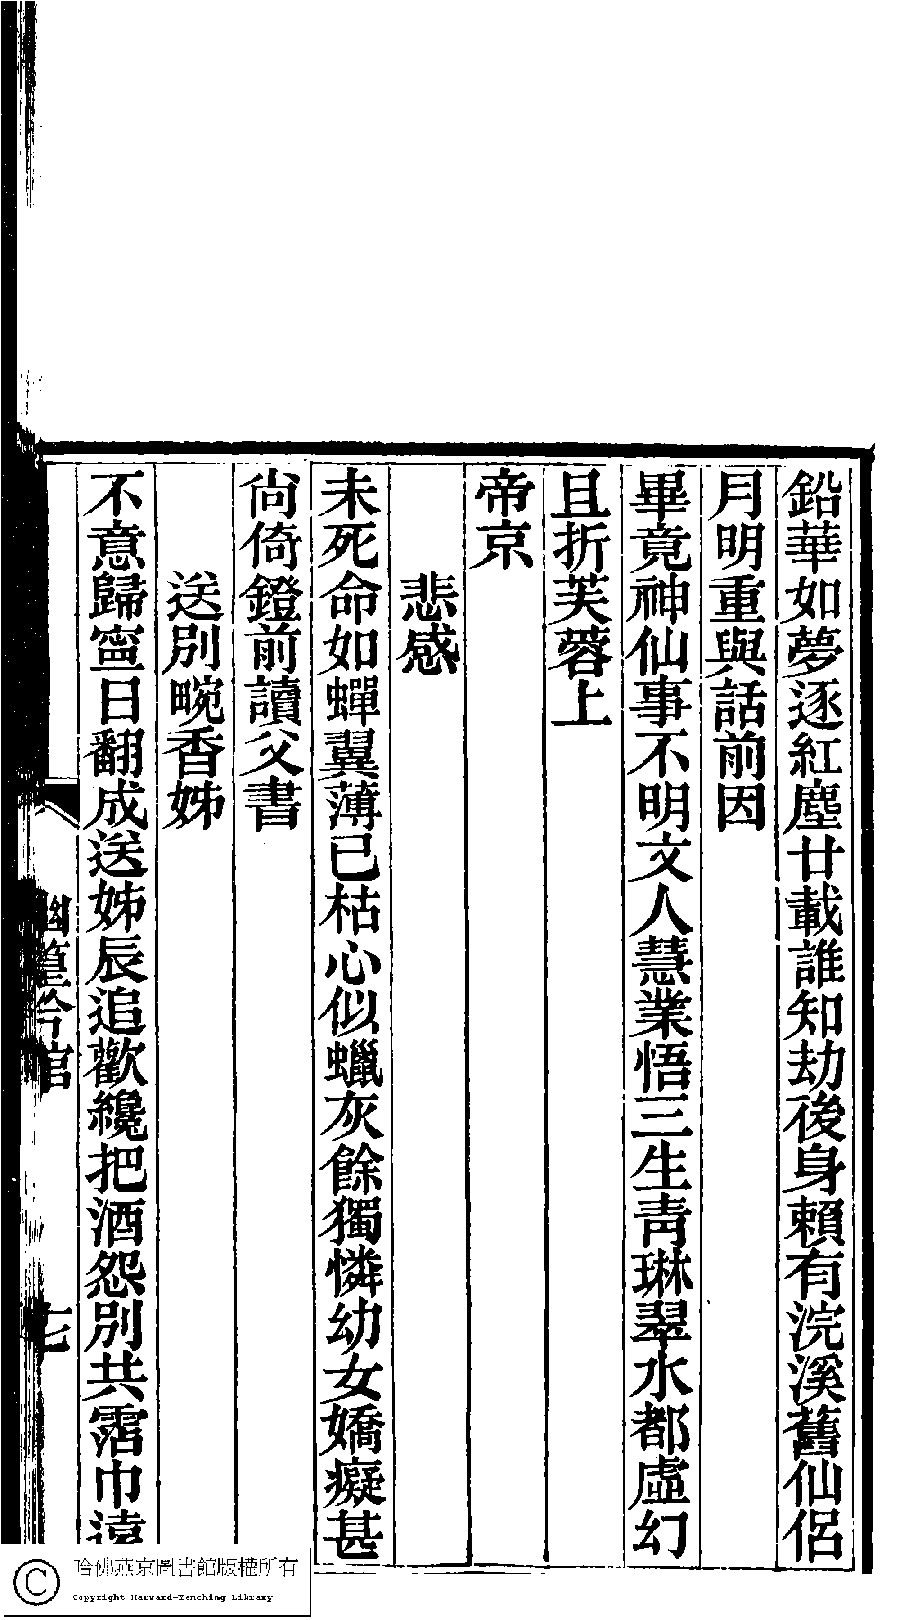 鉛華如夢逐紅塵廿載誰知劫後身賴有浣溪舊仙侶
月明重與話前因
畢竟神仙事不明文人慧業悟三生靑琳翠水都虛幻
且折芙蓉上
帝京
悲感
未死命如蟬翼薄已枯心似蠟灰餘獨憐幼女嬌癡甚
尙倚鐙前讀父書
送別畹香姊
不意歸寍日翻成送姊辰追歡纔把酒怨別共霑巾遠
幽篁吟館
七
哈佛燕京圖書館版權所有
Copyright Harvard-Yenching Library